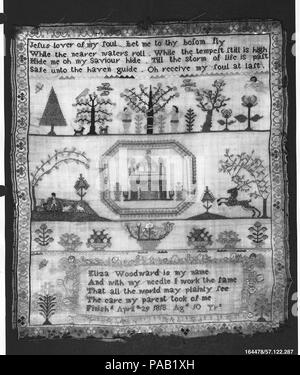 Jesus lover of my soul Let me to thy bosom fly
While the nearer waters roll While the tempest still is high
Hide me oh my Saviour hide Till the storm of life is past
Safe unto the haven guide Oh receive my soul at last
Eliza Woodward is my name
And with my needle I work the same
That all the world may plainly see
The care my parent took of me
Finishd April 29 1818 Agd 10 Yrs
164478/57.122.287
alamy
PAB1XH